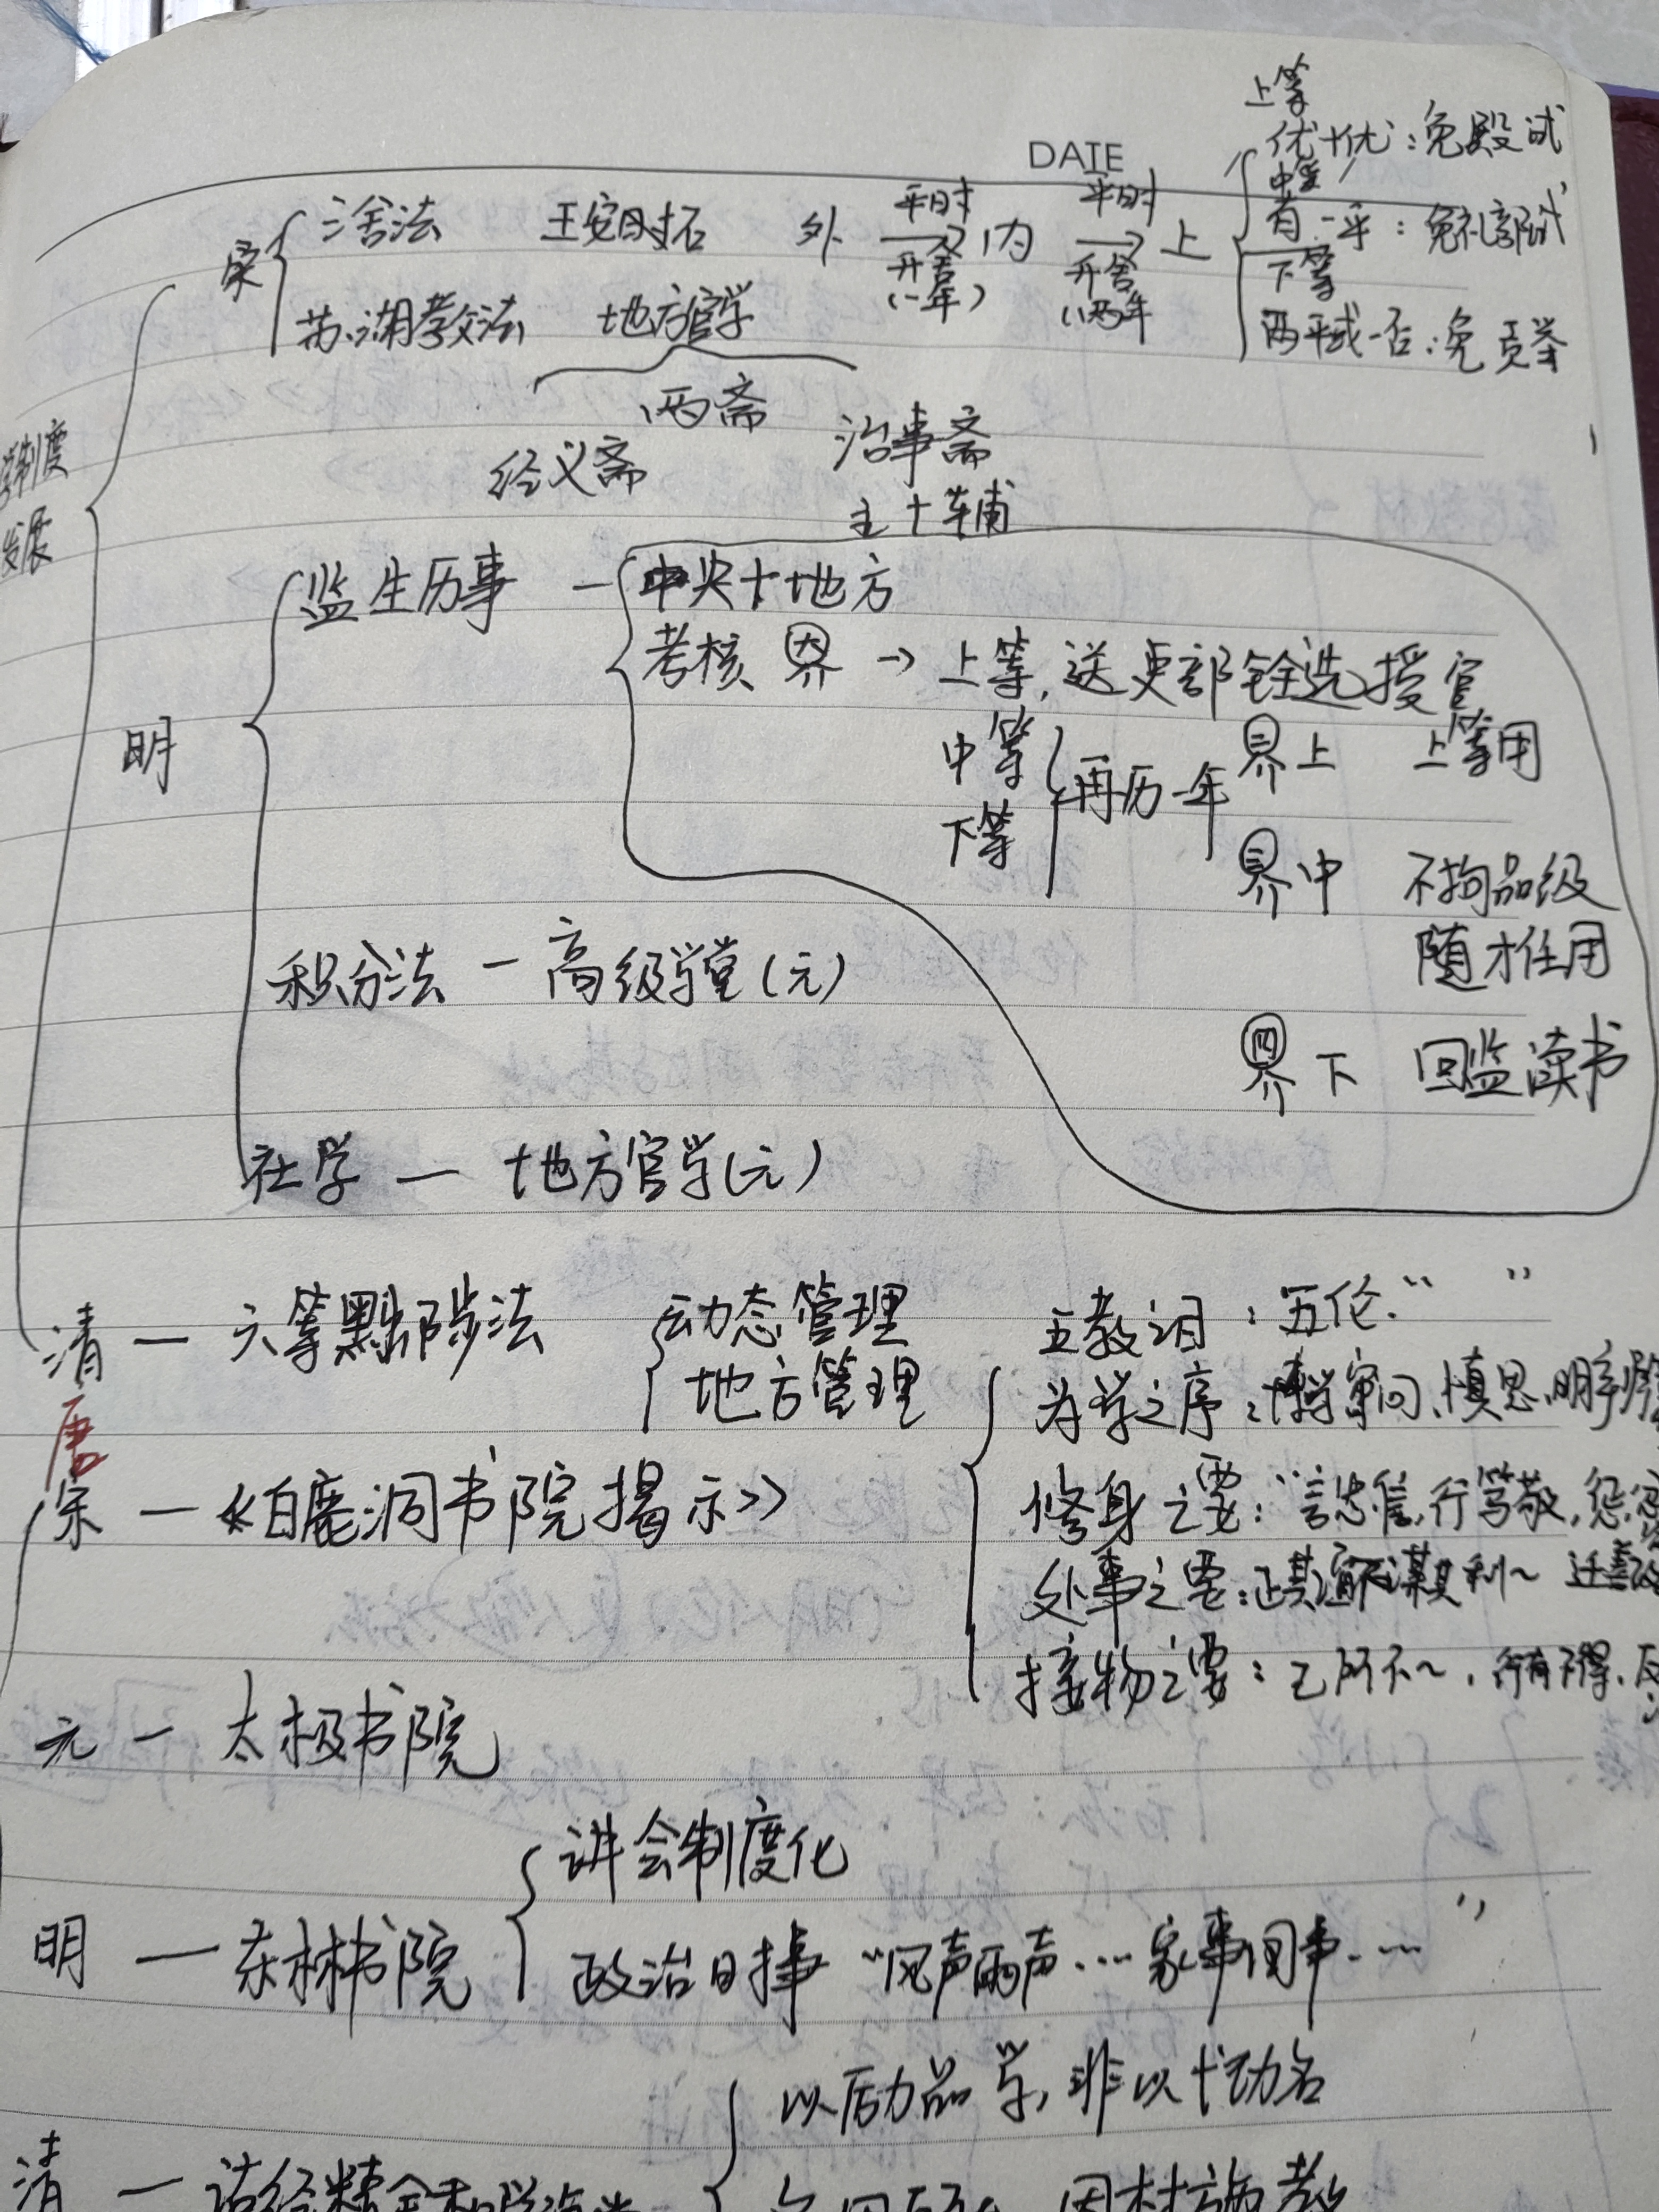 DATE
上等
优+优：免殿试
中等
有一平：免礼部试
下等
两平或一否：免贡举
宋 三舍法 王安石 外 平时 升舍 (一年) 内 平时 升舍 (两年 上
苏湖教法 地方官学
两斋
经义斋 治事斋
主+辅
制度
发展
明
监生历事 — 中央+地方
考核 → 上等，送吏部铨选授官
中等
下等
再历一年
上 上等用
中 不拘品级
随才任用
下 回监读书
积分法 — 高级学堂(元)
社学 — 地方官学(元)
清 — 六等黜陟法 动态管理
地方管理
唐
宋 — 《白鹿洞书院揭示》
五教之目：五伦“ ”
为学之序：博学、审问、慎思、明辨
修身之要：“言忠信，行笃敬，
处事之要：正其谊不谋其利~ 迁善
接物之要：己所不~，行有不得，反
元 — 太极书院
明 — 东林书院 讲会制度化
政治时事 “风声雨声……家事国事……”
清 — 诂经精舍和学海堂
以励品学，非以求功名
因材施教